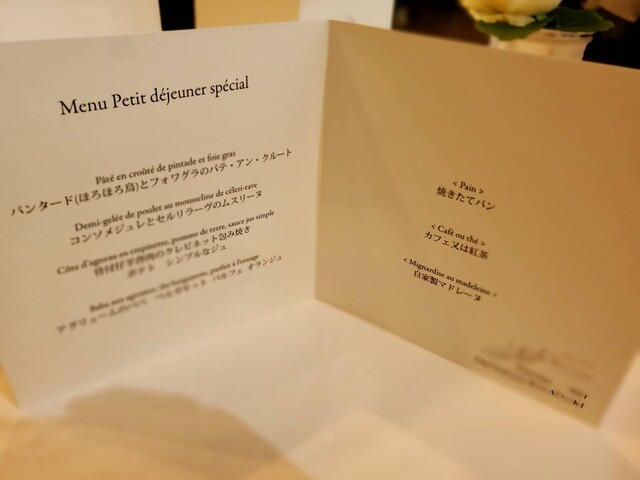 Menu Petit déjeuner spécial
Pâté en croûté de pintade et foie gras
パンタード(ほろほろ鳥)とフォワグラのパテ・アン・クルート
Demi-gelée de poulet au mousseline de céleri-rave
コンソメジュレとセルリラーヴのムスリーヌ
Côte d'agneau en crepinette, pomme de terre, sauce jus simple
骨付仔羊背肉のクレピネット包み焼き
ポテト シンプルなジュ
Baba aux agrumes, thé bergamote, parfait à l'orange
アグリュームのババ ベルガモット パルフェ オランジュ
< Pain >
焼きたてパン
< Café ou thé >
カフェ又は紅茶
< Mignardise au madeleine >
自家製マドレーヌ